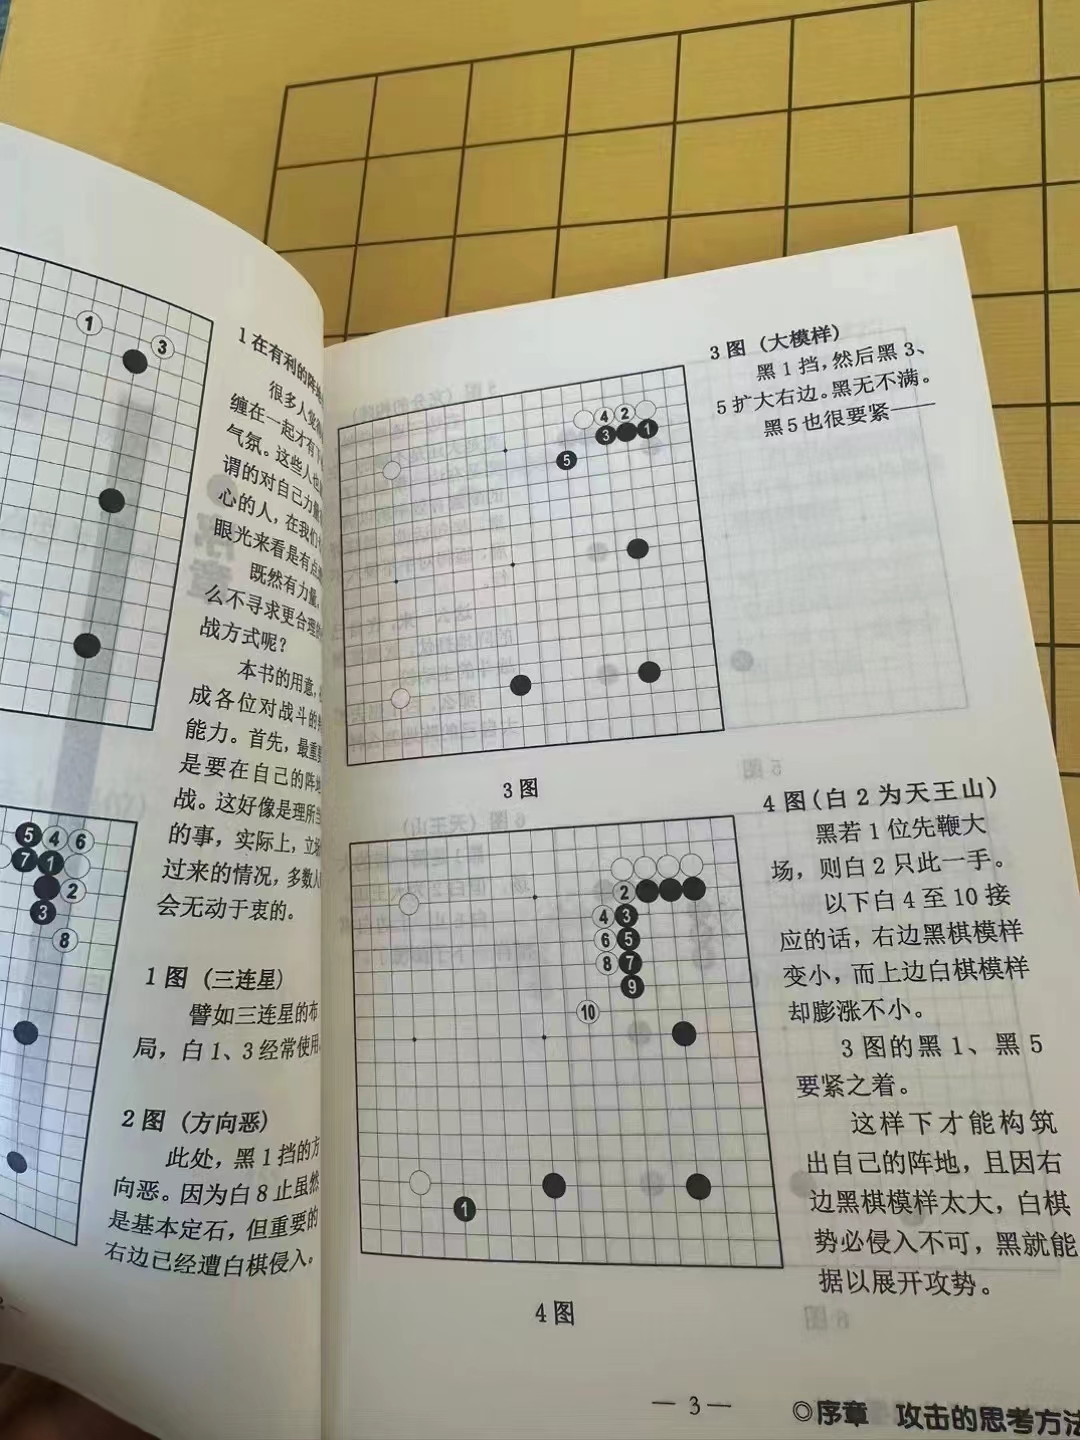 1在有利的阵地
很多人觉
缠在一起才有
气氛。这些人也
谓的对自己力量
心的人，在我们
眼光来看是有点
既然有力量，
么不寻求更合理的
战方式呢？
本书的用意，
成各位对战斗的
能力。首先，最重要
是要在自己的阵地
战。这好像是理所当
的事，实际上，立场
过来的情况，多数人
会无动于衷的。
1图（三连星）
譬如三连星的布
局，白1、3经常使用
2图（方向恶）
此处，黑1挡的方
向恶。因为白8止虽然
是基本定石，但重要的
右边已经遭白棋侵入。
1
3
5 4 6
7 1
2
3
8
3图（大模样）
黑1挡，然后黑3、
5扩大右边。黑无不满。
黑5也很要紧——
4 2
3 1
5
3图
4图（白2为天王山）
黑若1位先鞭大
场，则白2只此一手。
以下白4至10接
应的话，右边黑棋模样
变小，而上边白棋模样
却膨涨不小。
3图的黑1、黑5
要紧之着。
这样下才能构筑
出自己的阵地，且因右
边黑棋模样太大，白棋
势必侵入不可，黑就能
据以展开攻势。
2
4 3
6 5
8 7
9
10
1
4图
— 3 —
◎序章 攻击的思考方法